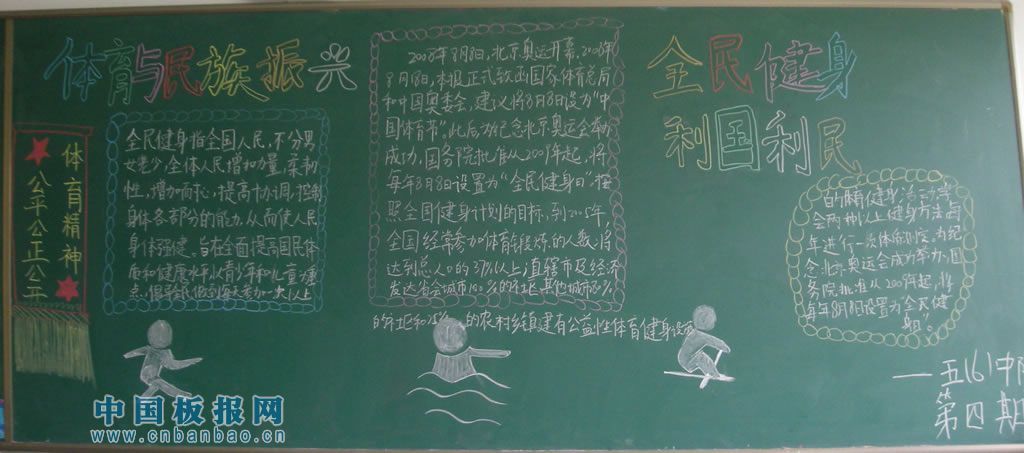 体育与民族振兴
体育精神
公平公正公平
全民健身指全国人民,不分男
女老少,全体人民增加力量,柔韧
性,增加耐心,提高协调,控制
身体各部分的能力,从而使人民
身体强健。旨在全面提高国民体
质和健康水平,以青少年和儿童为重
点,倡导全民做到每天参加一次以上
2008年8月8日,北京奥运开幕,2008年
8月18日,本报正式致函国家体育总局
和中国奥委会,建议将8月8日设为“中
国体育节”。此后,为纪念北京奥运会举办
成功,国务院批准从2009年起,将
每年8月8日设置为“全民健身日”,按
照全国健身计划的目标,到2005年,
全国经常参加体育锻炼的人数,将
达到总人口的37%以上;直辖市及经济
发达省会城市100%的社区,其他城市
的社区和 的农村乡镇建有公益性体育健身设
全民健身
利国利民
的体育健身活动,学
会两种以上健身方法,每
年进行一次体质测定。为纪
念北京奥运会成功举办,国
务院批准从2009年起,将
每年8月8日设置为“全民健
身日”。
——五(6)中队
第四期
中国板报网
www.cnbanbao.cn